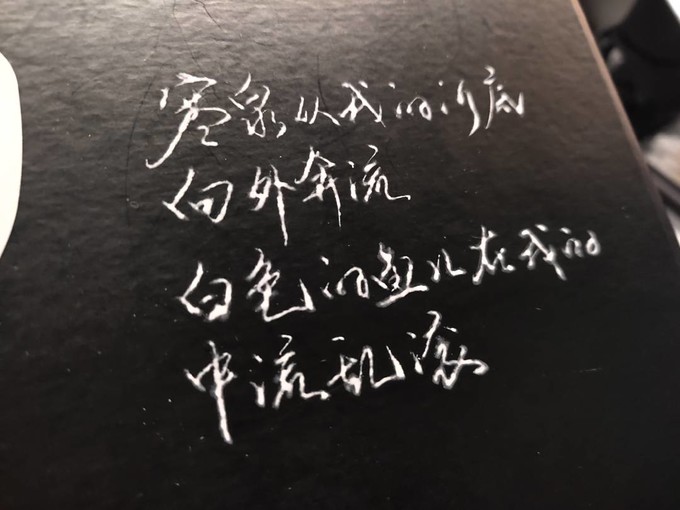 寒泉从我的河底
向外奔流
白色的鱼儿在我的
中流乱滚